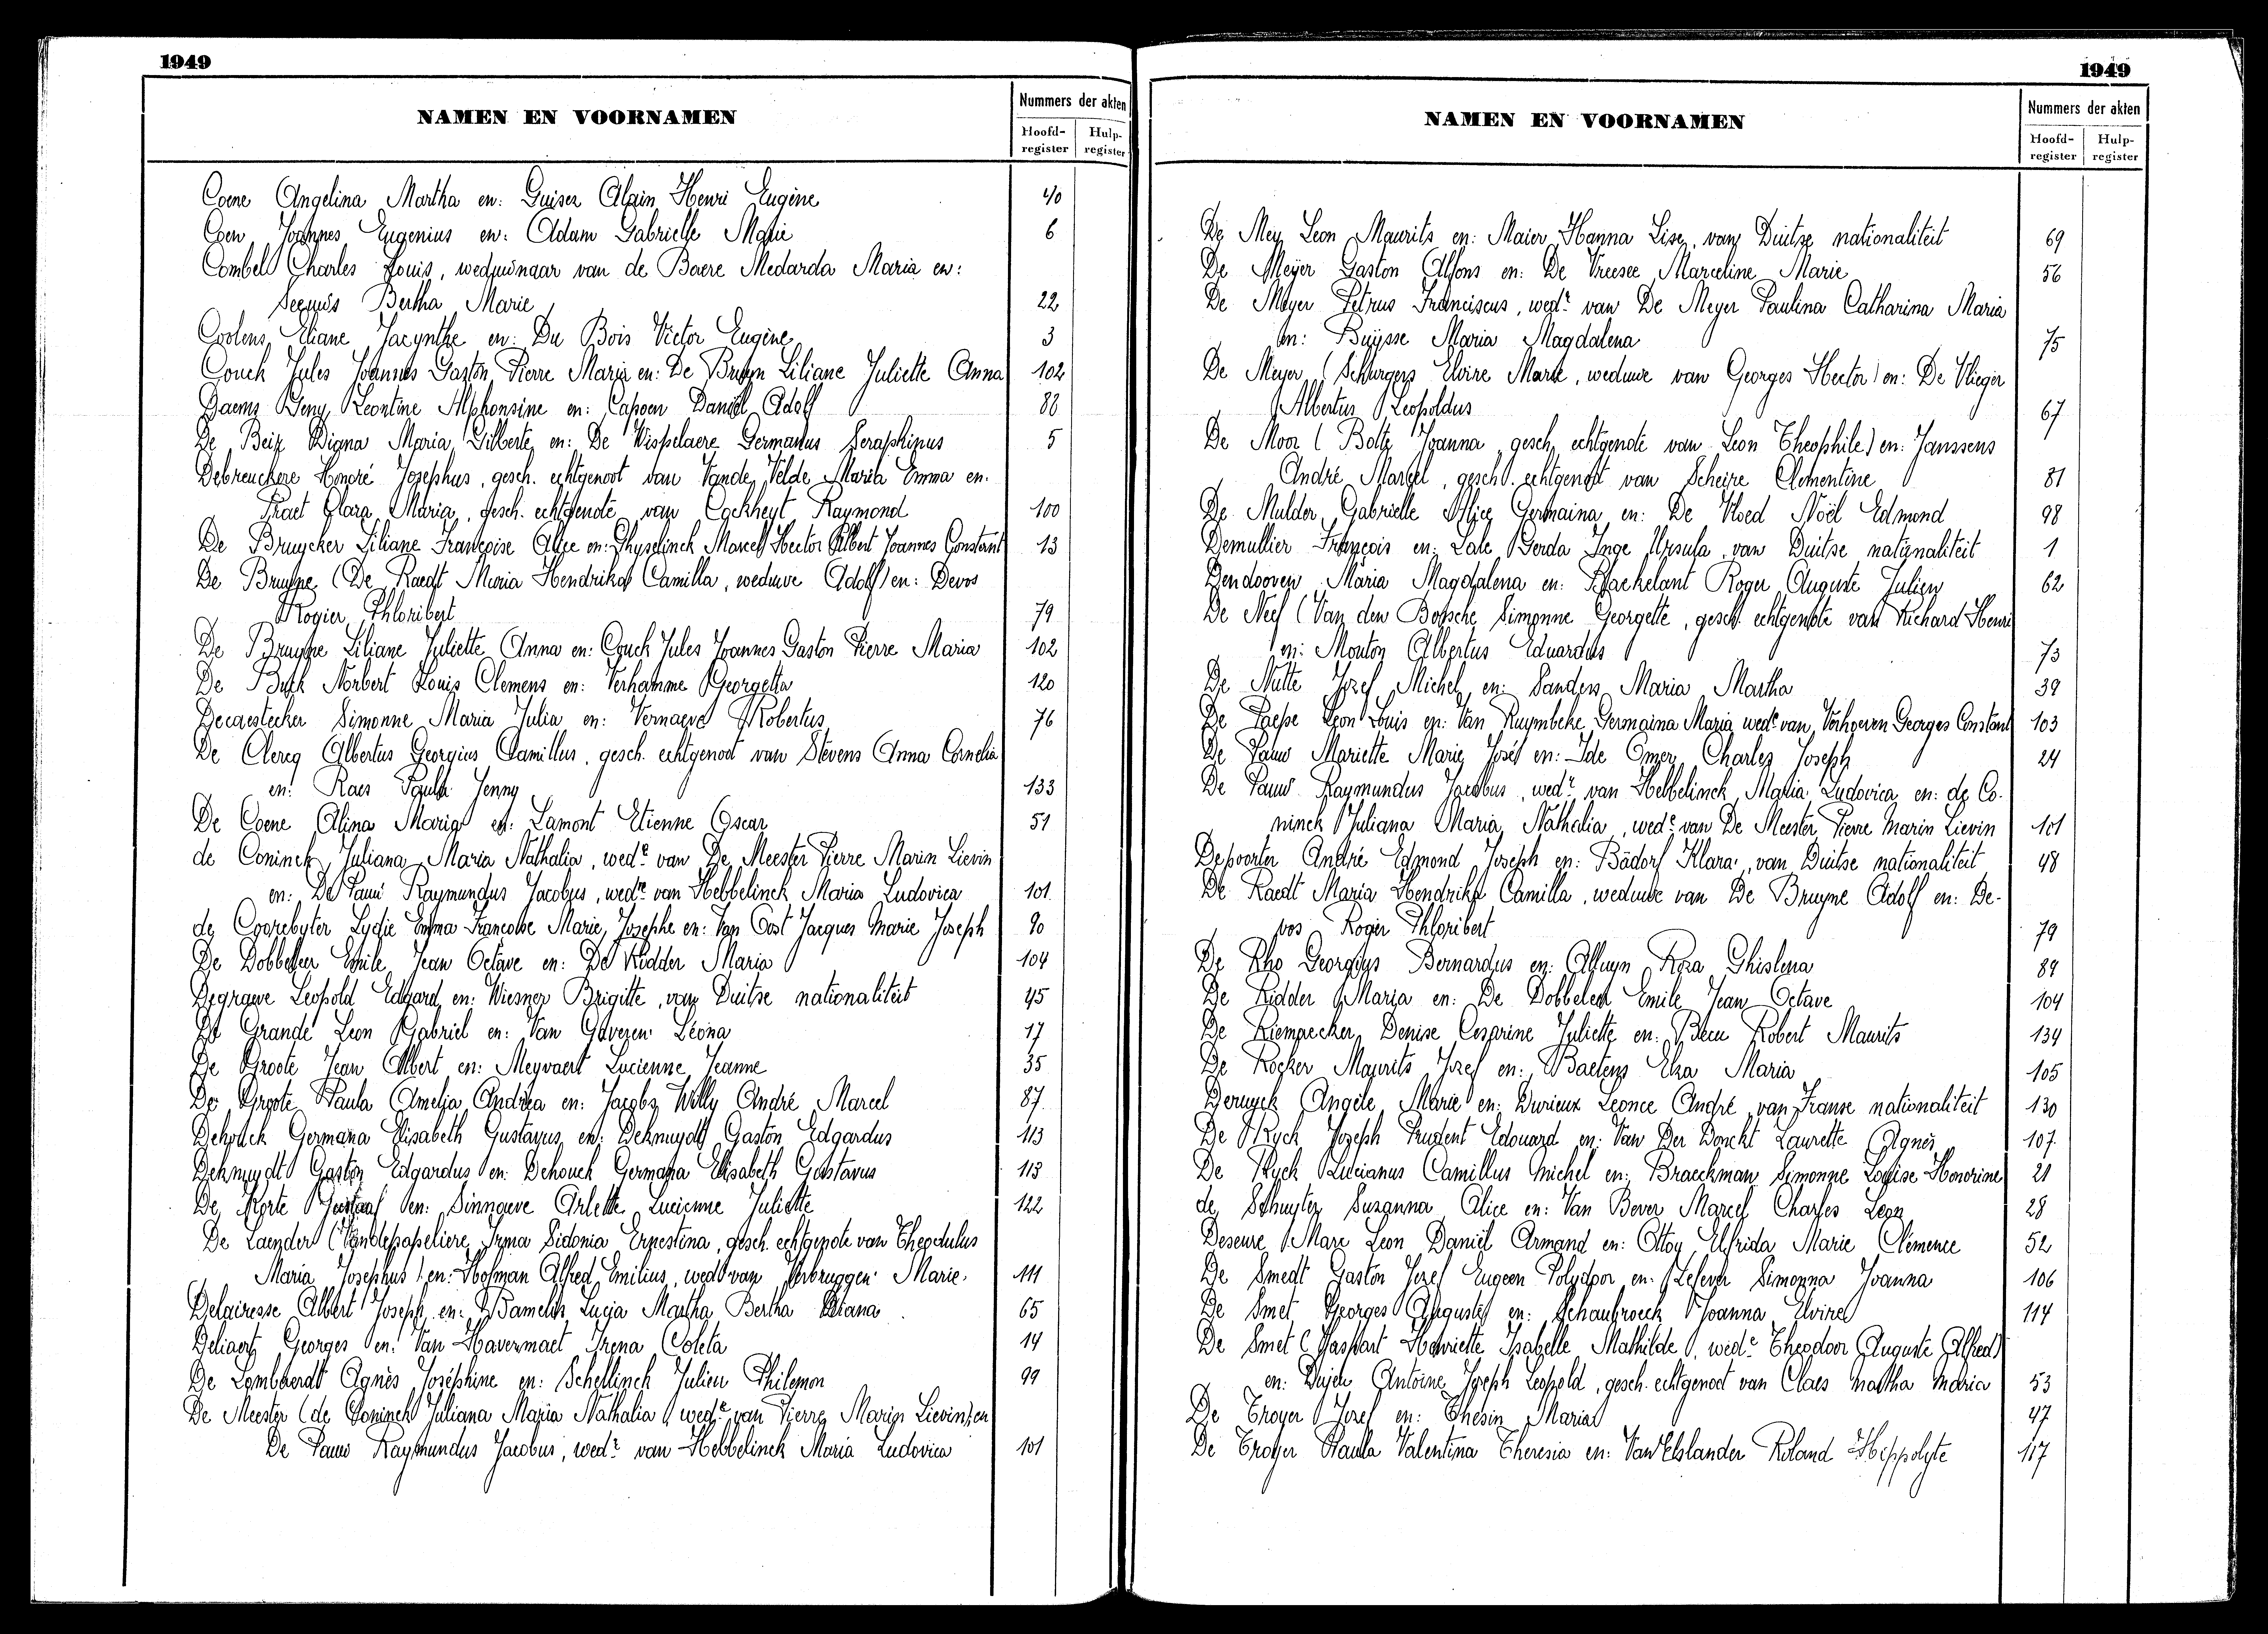 1949
NAMEN EN VOORNAMEN
Nummers der akten
Hoofd-
register
Hulp-
register
Coene Angelina Martha en: Guiser Alain Henri Eugène 40
Coen Joannes Eugenius en: Adam Gabrielle Marie 6
Combel Charles Louis, weduwnaar van de Baere Medarda Maria en:
Seynis Bertha Marie 22
Coolens Eliane Jacynthe en: Du Bois Victor Eugène 3
Couck Jules Joannes Gaston Pierre Maria en: De Bruyn Liliane Juliette Anna 102
Daems Jeny Leontine Alphonsine en: Capoen Daniël Adolf 88
De Beir Digna Maria Gilberte en: De Wispelaere Germanus Seraphinus 5
Debreuckere Honoré Josephus, gesch. echtgenoot van Vande Velde Maria Emma en.
Praet Clara Maria, gesch. echtgenote van Cockheyt Raymond 100
De Bruycker Liliane Françoise Alice en: Ghyselinck Marcel Hector Albert Joannes Constant 13
De Bruyne (De Raedt Maria Hendrika Camilla, weduwe Adolf) en: Devos
Rogier Phloribert 79
De Bruyne Liliane Juliette Anna en: Couck Jules Joannes Gaston Pierre Maria 102
De Norbert Louis Clemens en: Verhamme Georgetta 120
Decaestecker Simonne Maria Julia en: Vernaeve Robertus 76
De Clercq Albertus Georgius Camillus, gesch. echtgenoot van Stevens Anna Cornelia
en: Raes Paula Jenny 133
De Coene Alina Maria en: Lamont Etienne Oscar 51
de Coninck Juliana Maria Nathalia, wede van De Meester Pierre Marin Lievin
en: De Pauw Raymundus Jacobus, wedr van Hebbelinck Maria Ludovica 101
de Coorebyter Lydie Emma Francoise Marie Josephe en: Van Oost Jacques Marie Joseph 90
De Dobbeleer Emile Jean Octave en: De Ridder Maria 104
Degraeve Leopold Edgard en: Wiesner Brigitte, van Duitse nationaliteit 45
De Grande Leon Gabriel en: Van Gaveren Leona 17
De Groote Jean Albert en: Meyvaert Lucienne Jeanne 35
De Groote Paula Amelia Andréa en: Jacobs Willy André Marcel 87
Dehouck Germana Elisabeth Gustavus en: Deknuydt Gaston Edgardus 113
Deknuydt Gaston Edgardus en: Dehouck Germana Elisabeth Gustavus 113
De Korte Gustaaf en: Sinnaeve Arlette Lucienne Juliette 122
De Laender (Vandepapeliere Irma Sidonia Ernestina, gesch. echtgenote van Theodulus
Maria Josephus) en: Hofman Alfred Emilius, wedr van Verbruggen Marie. 111
Delairesse Albert Joseph en: Lucia Martha Bertha 65
Deliaert Georges en: Van Havermaet Irena Coleta 14
De Lombaerdt Agnès Joséphine en: Schellinck Julien Philemon 99
De Meester (de Coninck Juliana Maria Nathalia, wede van Pierre Marin Lievin) en
De Pauw Raymundus Jacobus, wedr van Hebbelinck Maria Ludovica 101
1949
NAMEN EN VOORNAMEN
Nummers der akten
Hoofd-
register
Hulp-
register
De Mey Leon Maurits en: Maier Hanna Lise, van Duitse nationaliteit 69
De Meyer Gaston Alfons en: De Vreese Marceline Marie 56
De Meyer Petrus Franciscus, wedr van De Meyer Paulina Catharina Maria
en: Buysse Maria Magdalena 75
De Meyer (Schurgers Elvire Marie, weduwe van Georges Hector) en: De Vlieger
Albertus Leopoldus 67
De Moor (Bolte Joanna, gesch. echtgenote van Leon Theophile) en: Janssens
André Marcel, gesch. echtgenoot van Scheire Clementine 81
De Mulder Gabrielle Alice Germaina en: De Vloed Noël Edmond 98
Demullier François en: Late Gerda Inge Ursula, van Duitse nationaliteit 1
Dendooven Maria Magdalena en: Roger Auguste Julien 62
De Neef (Van den Bossche Simonne Georgette, gesch. echtgenote van Richard Henri
en: Mouton Albertus Eduardus 73
De Nutte Jozef Michel en: Sanders Maria Martha 39
De Paepe Leon Louis en: Van Ruymbeke Germaina Maria wede van Verhoeven Georges Constant 103
De Pauw Mariette Marie José en: Ide Omer Charles Joseph 24
De Pauw Raymundus Jacobus, wedr van Hebbelinck Maria Ludovica en: de Co-
ninck Juliana Maria Nathalia, wede van De Meester Pierre Marin Lievin 101
Depoorter André Edmond Joseph en: Bädorf Klara, van Duitse nationaliteit 48
De Raedt Maria Hendrika Camilla, weduwe van De Bruyne Adolf en: De-
vos Roger Phloribert 79
De Rho Georgius Bernardus en: Alluyn Roza Ghislena 89
De Ridder Maria en: De Dobbeleer Emile Jean Octave 104
De Riemaecker Denise Cesarine Juliette en: Becu Robert Maurits 134
De Rocker Maurits Jozef en: Baetens Elza Maria 105
Deruyck Angèle Marie en: Durieux Leonce André, van Franse nationaliteit 130
De Ryck Jozeph Prudent Edouard en: Van Der Donckt Laurette Agnès 107
De Ryck Lucianus Camillus Michel en: Braeckman Simonne Louise Honorine 21
de Schuyter Suzanna Alice en: Van Bever Marcel Charles Leon 28
Deseure Marc Leon Daniël Armand en: Ottoy Elfrida Marie Clémence 52
De Smedt Gaston Jozef Eugeen Polydoor en: Lefever Simonna Joanna 106
De Smet Georges Auguste en: Schaubroeck Joanna Elvire 114
De Smet (Gaspart Henriette Isabelle Mathilde, wede Theodoor Auguste Alfred)
en: Antoine Joseph Leopold, gesch. echtgenoot van Claes Martha Maria 53
De Troyer Jozef en: Thesin Maria 47
De Troyer Paula Valentina Theresia en: Van Elslander Roland Hippolyte 117